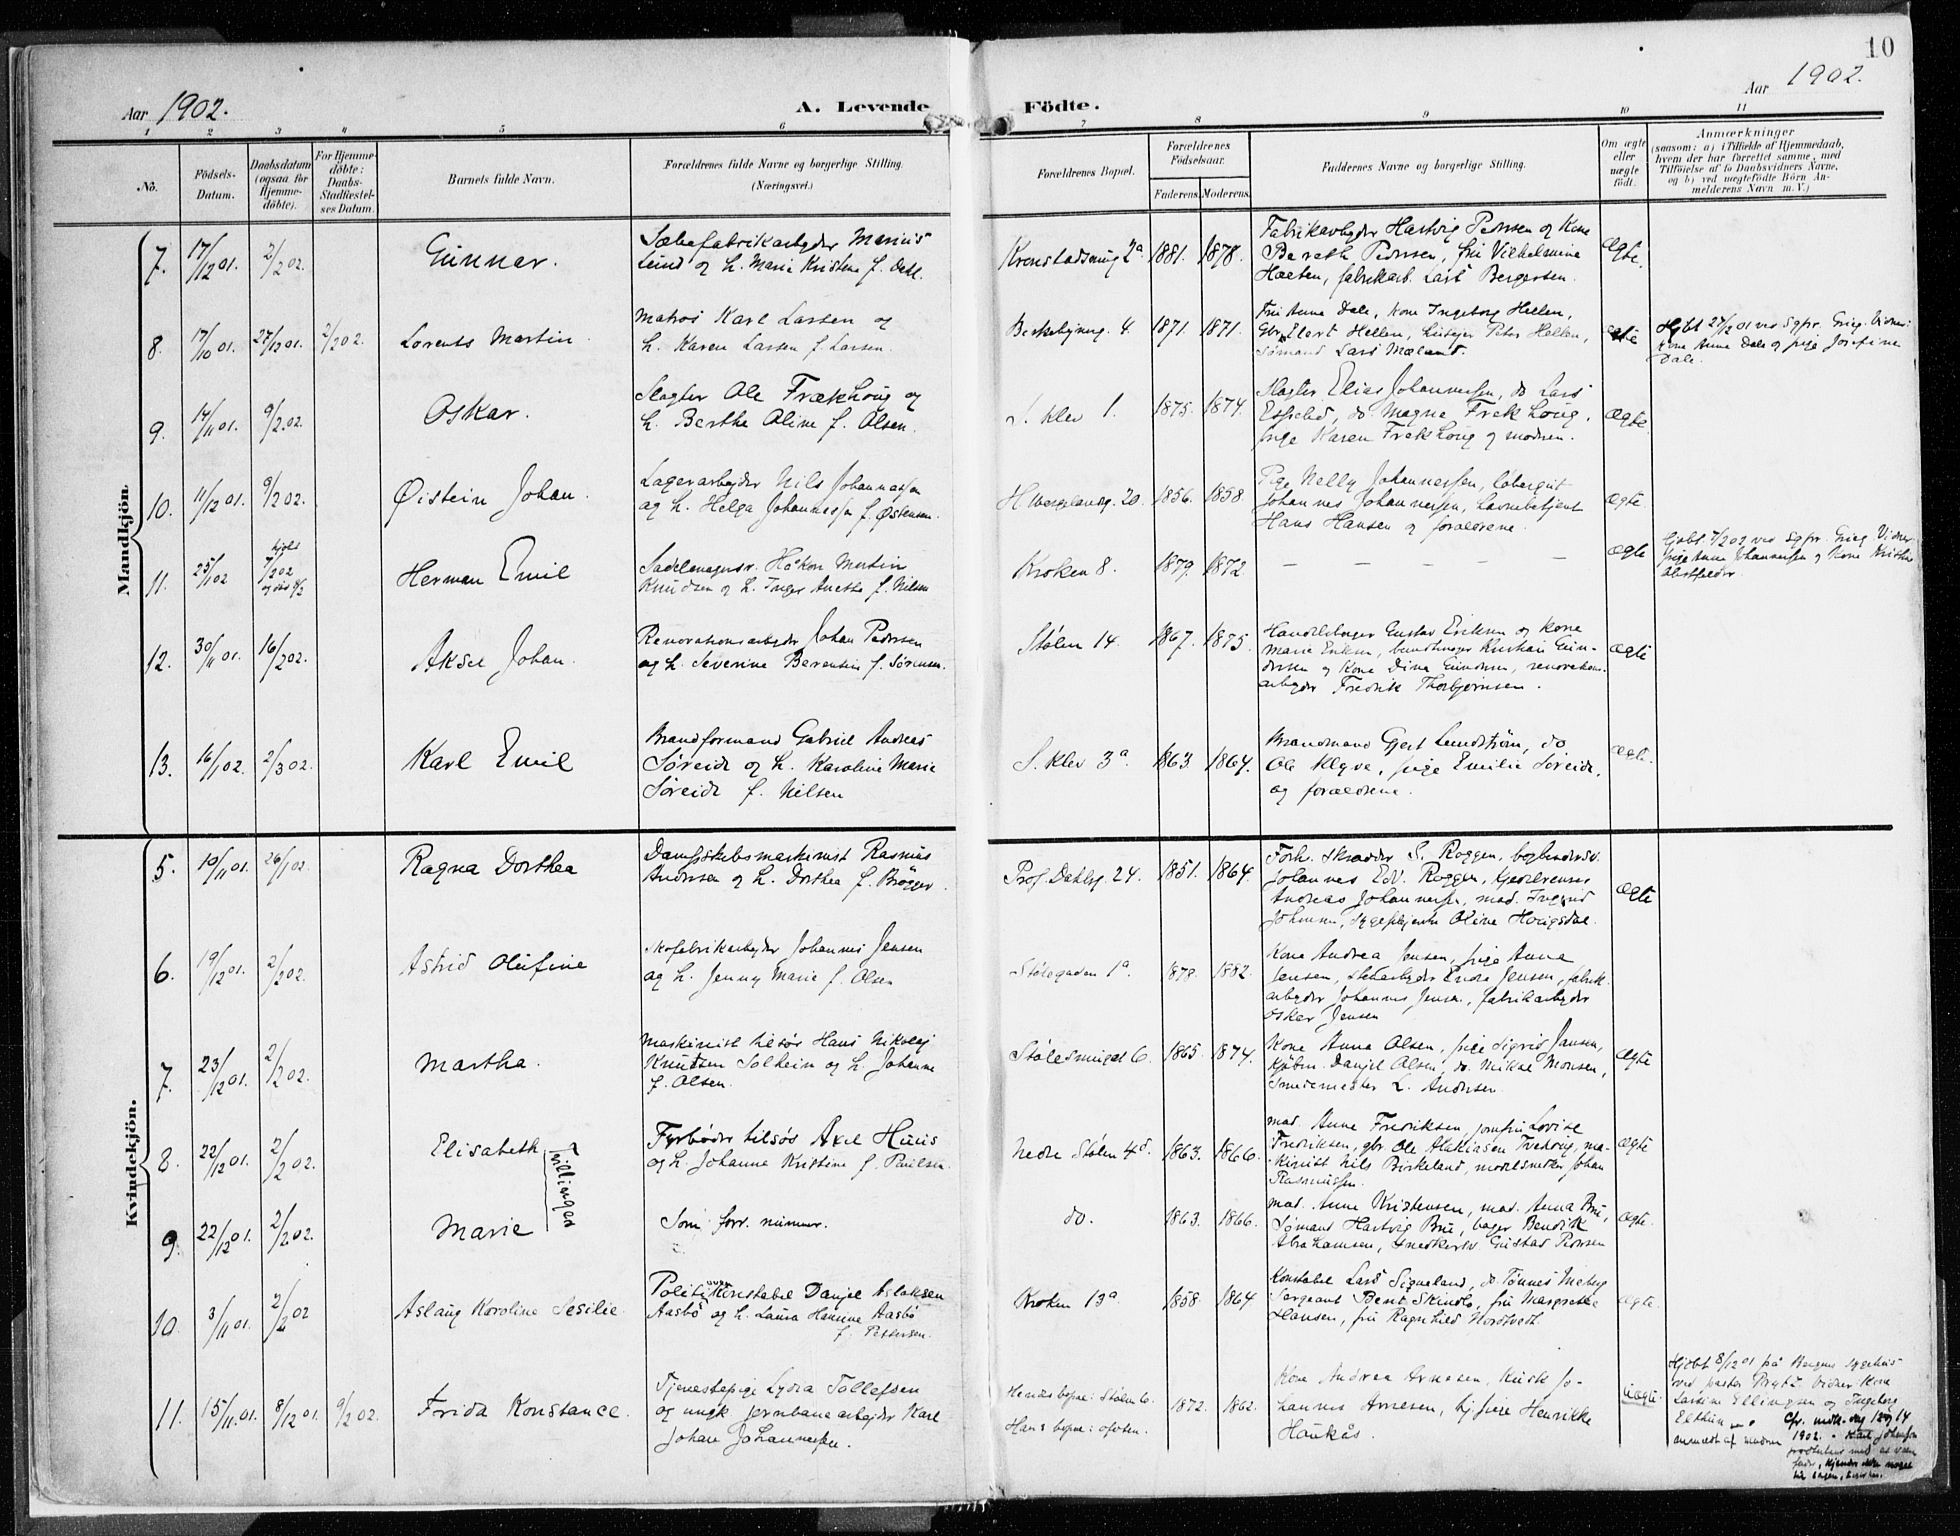 10
Aar 1902.
A. Levende
Födte.
Aar 1902.
1 2 3 4 5 6 7 8 9 10 11
No.
Födsels-
Datum.
Daabsdatum
(ogsaa for
Hjemme-
döbte).
For Hjemme-
döbte:
Daabs-
Stadfæstel-
ses Datum.
Barnets fulde Navn.
Forældrenes fulde Navne og borgerlige Stilling.
(Næringsvei.)
Forældrenes Bopæl.
Forældrenes
Födselsaar.
Faderens. Moderens.
Faddernes Navne og borgerlige Stilling.
Om ægte
eller
uægte
födt.
Anmærkninger
(saasom: a) i Tilfælde af Hjemmedaab,
hvem der har forrettet samme, med
Tilföielse af to Daabsvidners Navne,
og b) ved uægtefödte Börn An-
melderens Navn m. V.)
Mandkjön.
7. 17/12 01. 2/2 02. Gunnar.
Sæbefabrikarbeyder Marius
Lund og h. Marie Kristine f. Dahl.
Kronstadsmug 2a 1881. 1878.
Fabrikarbeyder Hartvig Pedersen og Kone
Bereth Pedersen, frk Vilhelmine
Holten, fabrikarb. Lars Bergersen.
Ægte.
8. 17/10 01. 27/12 01. 2/2 02. Lorents Martin
Matros Karl Larsen og
h. Karen Larsen f. Larsen.
4. 1871. 1871.
Fru Anna Dale, Kone Ingeborg Hellen,
Gbr. Elert Hellen, Peter Hellen,
Sømand Lars Mæland.
Ægte
Hjbt 27/12 01 ved Sgpr. Grieg. Vidner:
Kone Anna Dale og pige Josefine
Dale.
9. 14/11 01. 9/2 02. Oskar.
Slagter Ole Frækhoug og
h. Berthe Oline f. Olsen.
S. Klev 1. 1875. 1874.
Slagter Elias Johannessen, do Lars
Espeland, do. Magne Frekhoug,
pige Karen Frekhoug og modren.
Ægte.
10. 11/12 01. 9/2 02. Øistein Johan.
Lagerarbeyder Nils Johannessen
og h. Helga Johannessen f. Østensen.
H. Wergelandsg. 20. 1856. 1858.
Pige Nelly Johannessen, løbergut
Johannes Johannessen, havnebetjent
Hans Hansen og forældrene.
Ægte.
11. 25/1 02 7/2 02 Herman Emil
Sadelmagersv. Håkon Martin
Knudsen og h. Inger Anette f. Nilsen
Kroken 8. 1879. 1872
– – – – – –
Ægte
Hjbt. 7/2 02 ved Sgpr. Grieg. Vidner
pige Anna Johannessen og Kone Kristine
12. 30/11 01. 16/2 02. Aksel Johan.
Renovationsarbeyder Johan Pedersen
og h. Severine Berentin f. Sørensen.
Stølen 14. 1867. 1875.
Handelsbager Gustav Eriksen og kone
Marie Eriksen, Kristian Gun-
dersen og Kone Dina Gundersen, renovations-
arbeyder Fredrik Thorbjørnsen.
Ægte
13. 16/1 02. 2/3 02. Karl Emil
Brandformand Gabriel Andreas
Søreide og h. Karoline Marie
Søreide f. Nilsen
S. Klev 3a. 1863. 1864.
Brandmand Gjert Lundstrøm, do
Ole Klyve, pige Emilie Søreide,
og forældrene.
Ægte.
Kvindekjön.
5. 10/11 01. 26/1 02. Ragna Dorthea
Dampskibsmaskinist Rasmus
Andersen og h. Dorthea f. Brøgger.
Prof. Dahlsg. 24. 1851. 1864.
Forh. skrædder S. Roggen, bogbindersv.
Johannes Edv. Roggen,
Andreas Johannessen, mad. Ingerid
Johnsen, sygepleierske Oline Hougsdal.
Ægte
6. 19/12 01. 2/2 02. Astrid Olufine
Skofabrikarbeyder Johannes Jensen
og h. Jenny Marie f. Olsen
Stølegaden 1a. 1878. 1882.
Kone Andrea Jensen, pige Anna
Jensen, Endre Jensen, fabrik-
arbeyder Johannes Jensen, fabrikarbeyder
Oskar Jensen
7. 23/12 01. 2/2 02. Martha.
Maskinist tilsøs Hans Nikolaj
Knutsen Solheim og h. Johanne
f. Olsen.
Stølesmuget 6. 1865. 1874.
Kone Anna Olsen, pige Sigrid Jansen,
Kjøbm. Danjel Olsen, do. Mikal Monsen,
Smedemester L. Andersen.
Ægte
8. 22/12 01. 2/2 02. Elisabeth
Tvillinger
Fyrbøder tilsøs Axel Huus
og h. Johanne Kristine f. Paulsen.
Nedre Stølen 4d. 1863. 1866.
Mad. Anne Fredriksen, jomfru Lovise
Fredriksen, gbr Ole Mathiasen Tvethoug, ma-
skinist Nils Birkeland, modelsnedker Johan
Rasmussen.
Ægte
9. 22/12 01. 2/2 02. Marie
Som forr. nummer.
do. 1863. 1866.
Mad. Anne Kristensen, mad. Anna Bru,
Sømand Hartvig Bru, bager Bendik
Abrahamsen, snedkersv. Gustav Pedersen
Ægte.
10. 3/11 01. 2/2 02 Aslaug Karoline Sesilie.
Politioverkonstabel Danjel Aslaksen
Aasbø og h. Laura Hanine Aasbø
f. Pettersen.
Kroken 13a 1858. 1864
Konstabel Lars Signaland, do. Tønnes Meberg
Sergeant Bent Skindlo, fru Margrethe
Hansen, fru Ragnhild Nordtvedt.
Ægte.
11. 15/11 01. 8/12 01. 9/2 02. Frida Konstance.
Tjenestepige Lydia Tollefsen
og ungk. jernbanearbeyder Karl
Johan Johannessen.
Hendes bopæl: Stølen 6.
Hans bopæl: 1872. 1862.
Kone Andrea Arnesen, Kusk Jo-
hannes Arnesen, hj. pige Henrikke
Haukås.
Uægte
Hjdbt 8/12 01 på Bergens sygehus
ved pastor Vidner Kone
Larsine Ellingsen og Ingeborg
1902. Karl Johansen